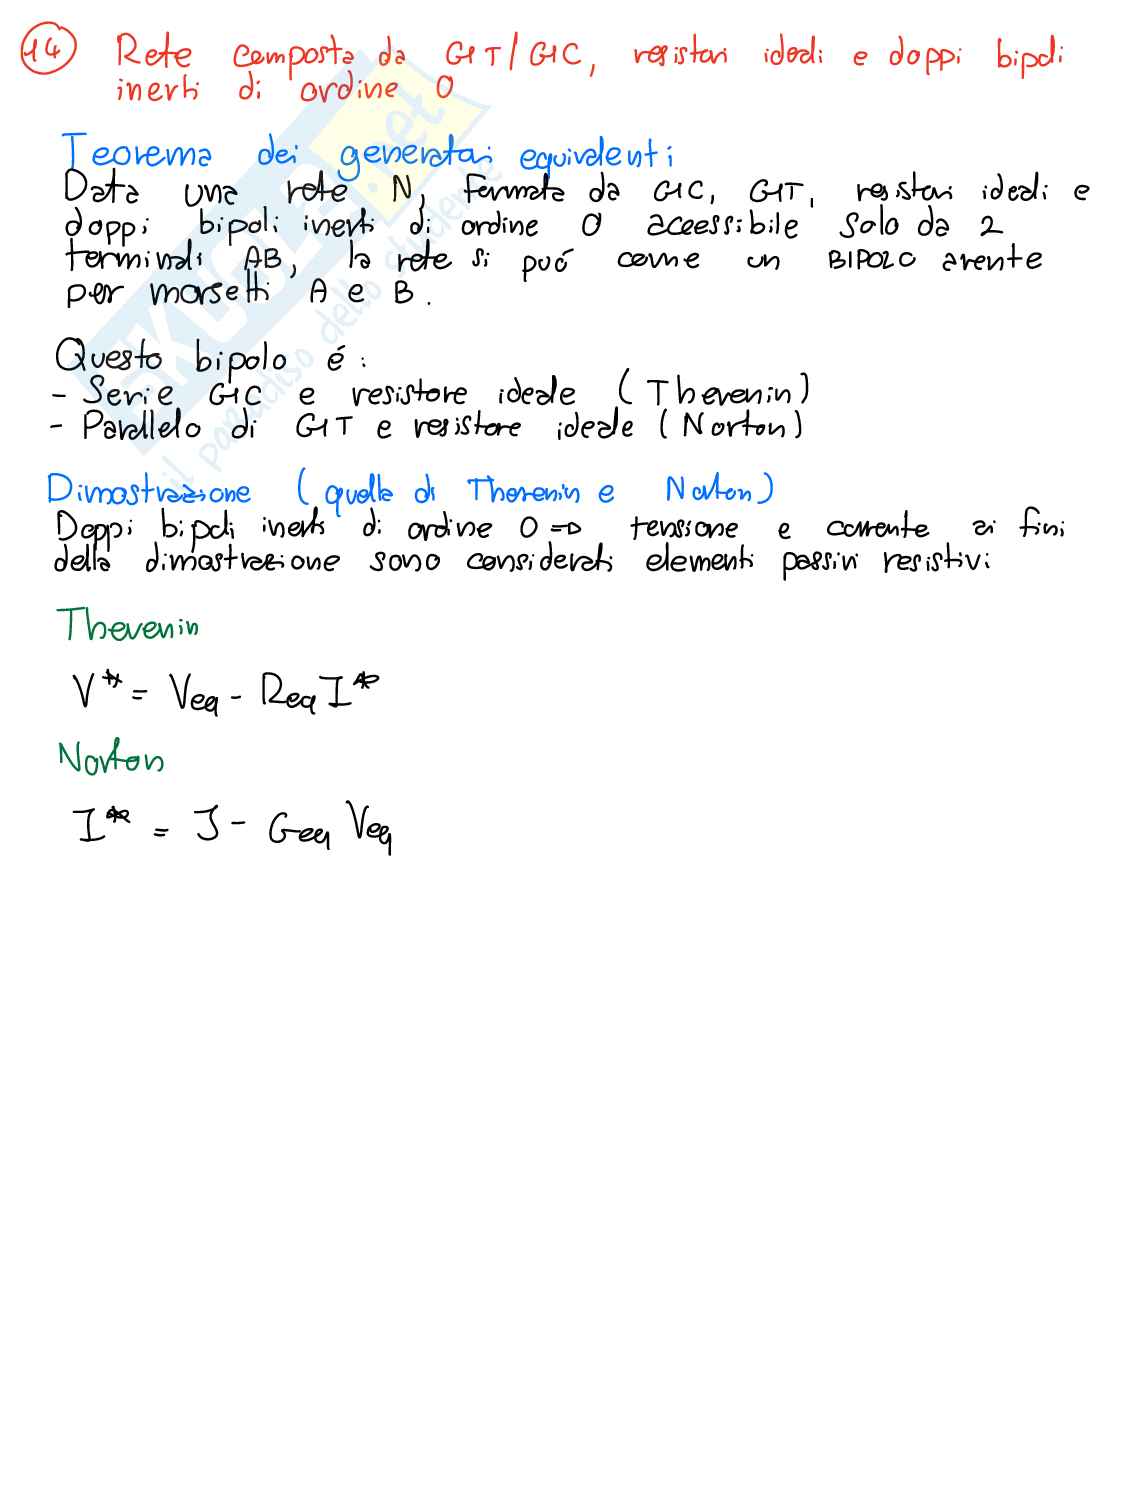 14 Rete composta da GIT/GIC, resistori ideali e doppi bipoli
inerti di ordine 0
Teorema dei generatori equivalenti
Data una rete N, formata da GIC, GIT, resistori ideali e
doppi bipoli inerti di ordine 0 accessibile solo da 2
terminali AB, la rete si puó come un BIPOLO avente
per morsetti A e B.
Questo bipolo é:
- Serie GIC e resistore ideale (Thevenin)
- Parallelo di GIT e resistore ideale (Norton)
Dimostrazione (quella di Thevenin e Norton)
Doppi bipoli inerti di ordine 0 => tensione e corrente ai fini
della dimostrazione sono considerati elementi passivi resistivi
Thevenin
V* = Veq - Req I*
Norton
I* = J - Geq Veq
SKUOLA.net
il paradiso dello studente